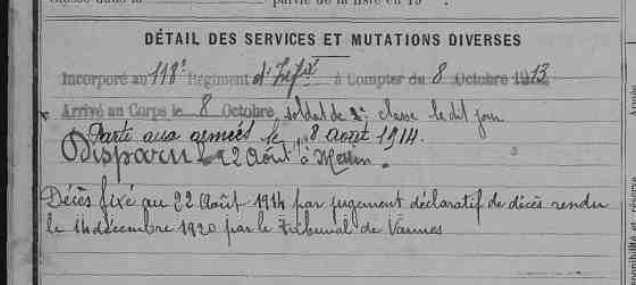 partie de la liste en 19
DÉTAIL DES SERVICES ET MUTATIONS DIVERSES
Incorporé au 118e Régiment d'Infie à Compter du 8 Octobre 1913
Arrivé au Corps le 8 Octobre, soldat de 2e classe le dit jour
Parti aux armées le 8 août 1914.
Disparu le 22 Août à Messin.
Décès fixé au 22 Août 1914 par jugement déclaratif de décès rendu
le 14 décembre 1920 par le Tribunal de Vannes